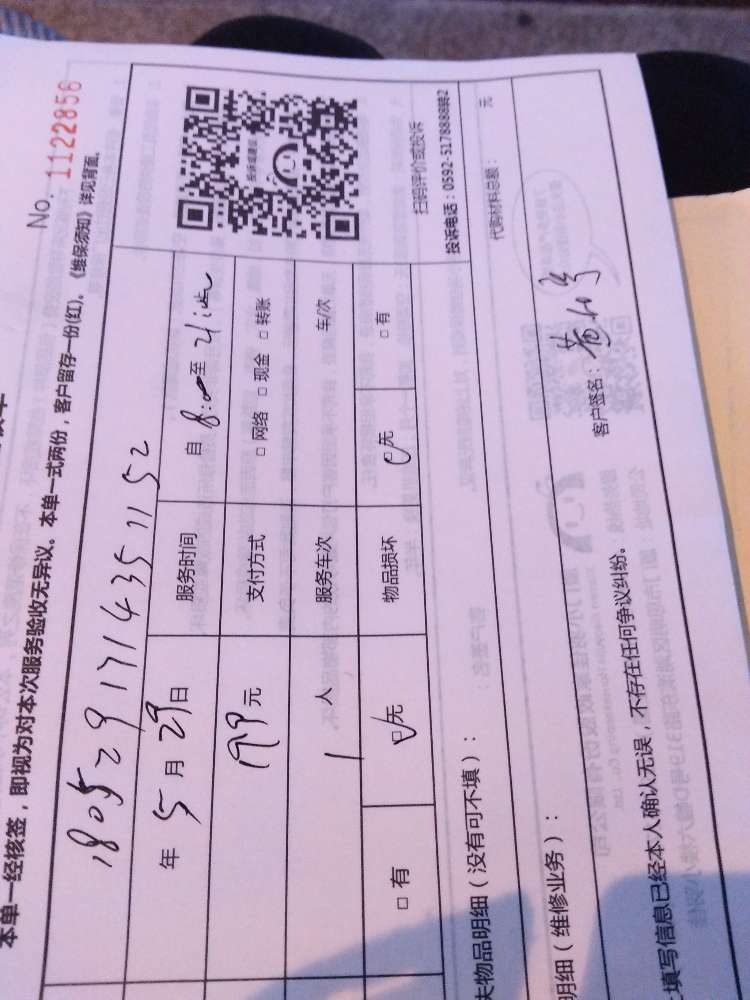 No. 1122856
本单一经核签，即视为对本次服务验收无异议。本单一式两份，客户留存一份(红)。《维保须知》详见背面。
180529171435 1152
年 5 月 29 日 服务时间 自 8:00 至
199 元 支付方式 □ 网络 □ 现金 □ 转账
1 人 服务车次 车/次
□ 有 □ 无 物品损坏 □ 无 □ 有
扫码评价或投诉
投诉电话：0592-5178888转2
失物品明细（没有可不填）：
代购材料总额： 元
明细（维修业务）：
填写信息已经本人确认无误，不存在任何争议纠纷。
客户签名：